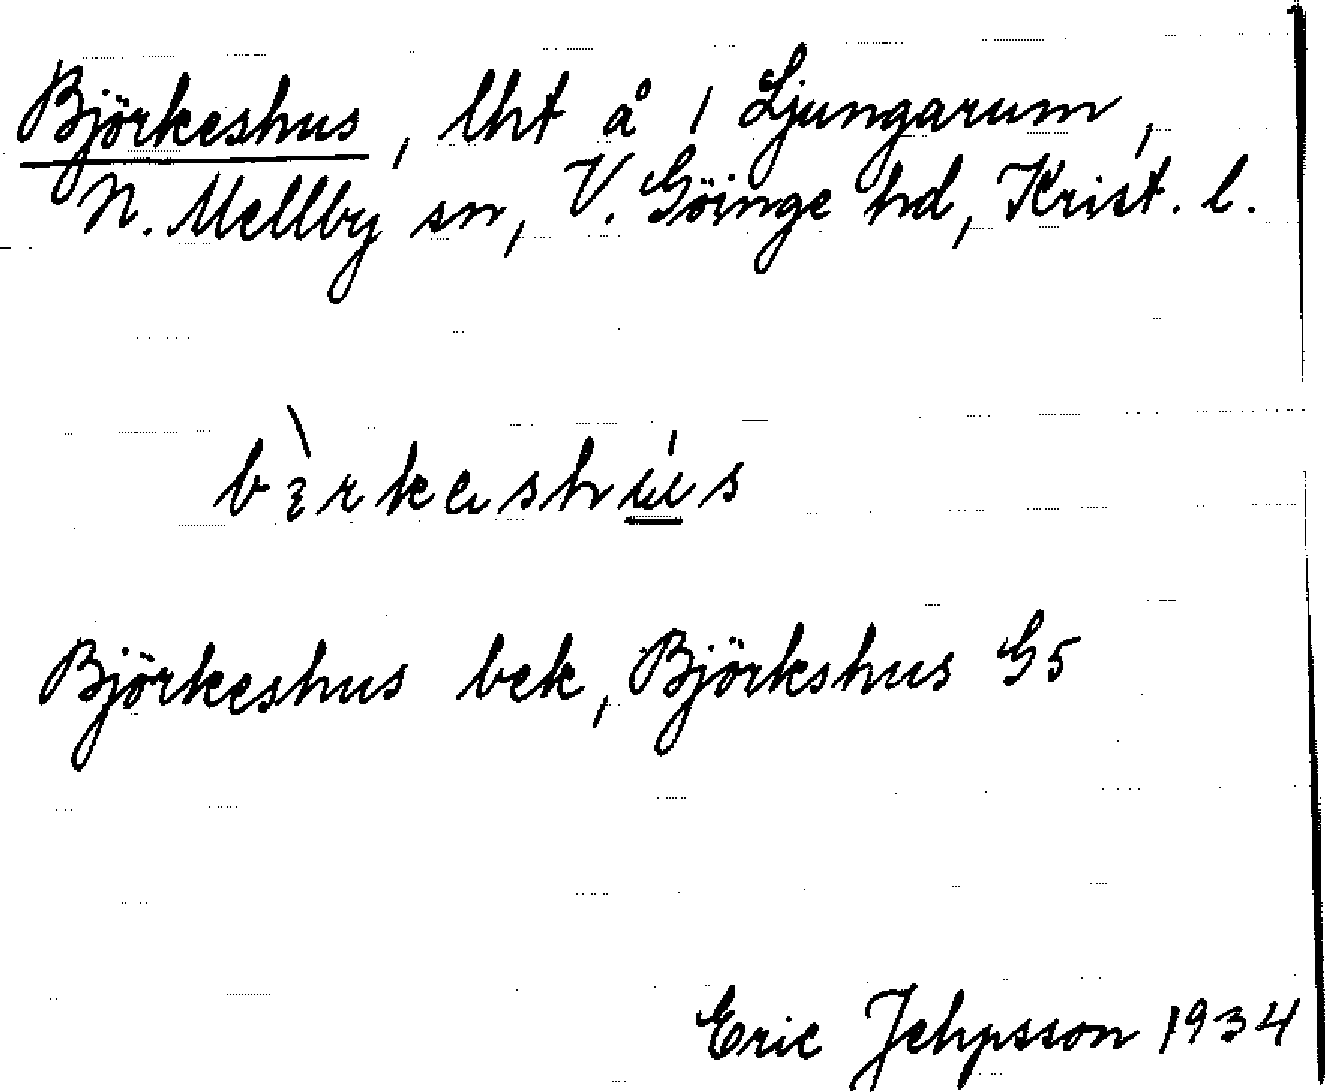 Björkeshus, lht å 1 Ljungarum,
N. Mellby sn, V. Göinge hd, Krist. l.
Björkeshus bek, Björkshus G5
Eric Jehpsson 1934